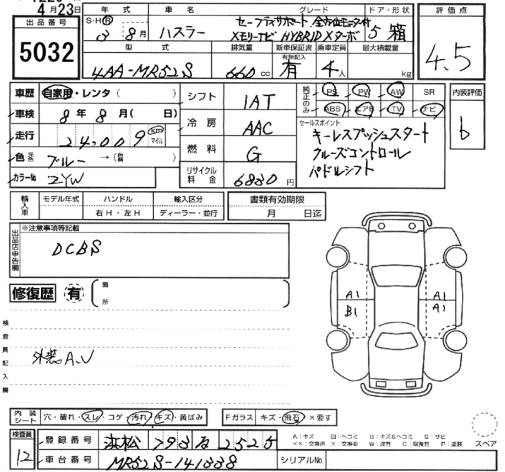 4月23日
出品番号
5032
年式 車名 グレード ドア・形状
S・H・R 3 8月 ハスラー セーフティサポート 全方位モニター付 メモリーナビ HYBRID Xターボ 5 箱
型式 排気量 新車保証書 乗車定員 最大積載量
有無記入
4AA-MR52S 660cc 有 4人 kg
評価点
4.5
車歴 自家用・レンタ( )
車検 8年8月( 日)
走行 24,009 km マイル
色 元色 ブルー→(替 )
カラーNo. ZYW
シフト IAT
冷房 AAC
燃料 G
リサイクル料金 6830円
純正のみ PS PW AW SR
ABS エアB TV ナビ
セールスポイント
キーレスプッシュスタート
クルーズコントロール
パドルシフト
内装評価
b
輸入車 モデル年式 ハンドル 輸入区分
右H・左H ディーラー・並行
書類有効期限
月 日迄
※注意事項等記載
DCBS
修復歴 有 箇所
A1
B1
A1
A1
検査員記入欄
外装A.U
内装シート 穴・破れ・スレ・コゲ・汚れ・キズ・黄ばみ
Fガラス キズ・飛石・×要す
検査員
12
登録番号 浜松 793 る 2525
車台番号 MR52S-141338
シリアルNo.
A:キズ U:ヘコミ B:キズ&ヘコミ S:サビ
スペア